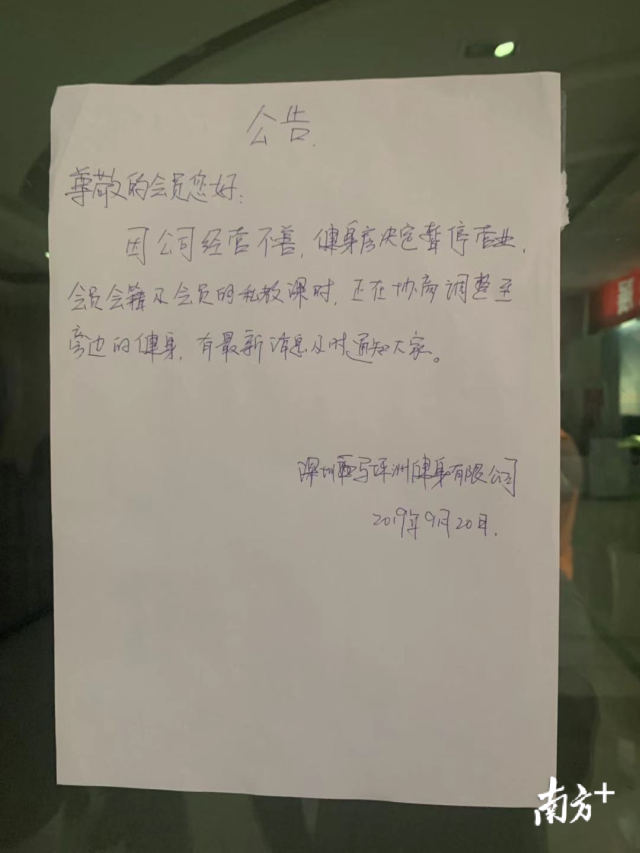 公告.
尊敬的会员您好:
因公司经营不善,健身房决定暂停营业,
会员会籍及会员的私教课时,正在协商调整至
旁边的健身,有最新消息及时通知大家。
深圳西马坪洲健身有限公司
2019年9月20日.
南方+